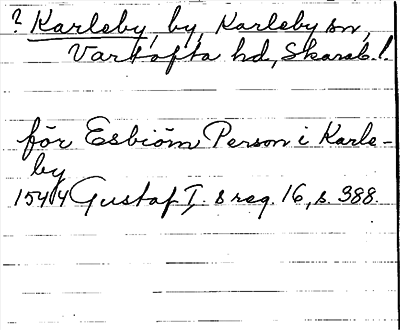 ? Karleby, by, Karleby sn,
Vartofta hd, Skarab. l.
för Esbiörn Person i Karle-
by
1544 Gustaf I:s reg. 16, s. 388.